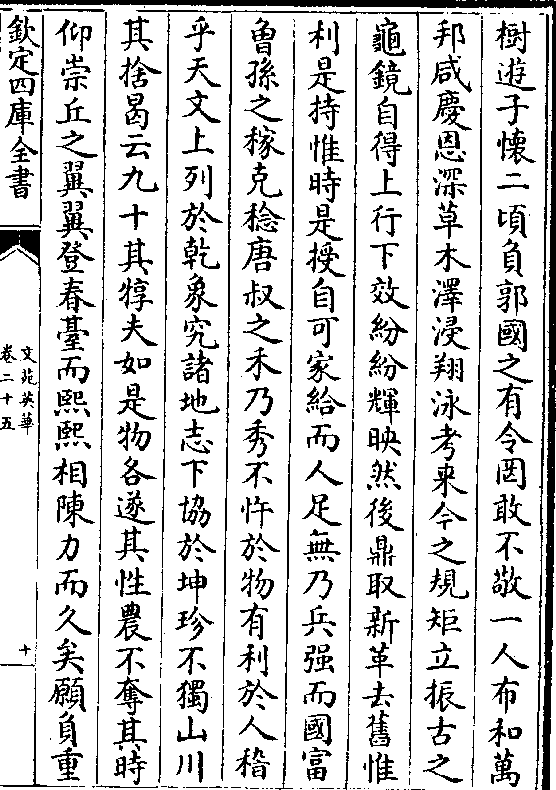 樹遊子懷二頃負郭國之有令罔敢不敬一人布和萬
邦咸慶恩深草木澤浸翔泳考来今之規矩立振古之
龜鏡自得上行下效紛紛輝映然後鼎取新革去舊惟
利是持惟時是授自可家給而人足無乃兵强而國富
魯孫之稼克稔唐叔之禾乃秀不忤於物有利於人稽
乎天文上列於乾象究諸地志下協於坤珍不獨山川
其捨曷云九十其犉夫如是物各遂其性農不奪其時
仰崇丘之翼翼登春臺而熙熙相陳力而久矣願負重
欽定四庫全書
文苑英華
卷二十五
十